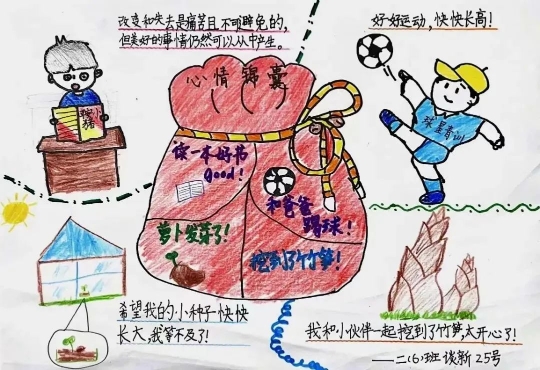 改变和失去是痛苦且不可避免的，
但美好的事情仍然可以从中产生。
好好运动，快快长高！
心情锦囊
读一本好书
good!
和爸爸
踢球！
萝卜发芽了！
挖到了竹笋！
希望我的小种子快快
长大，我等不及了！
我和小伙伴一起挖到了竹笋，太开心了！
——二(6)班 谈新 25号